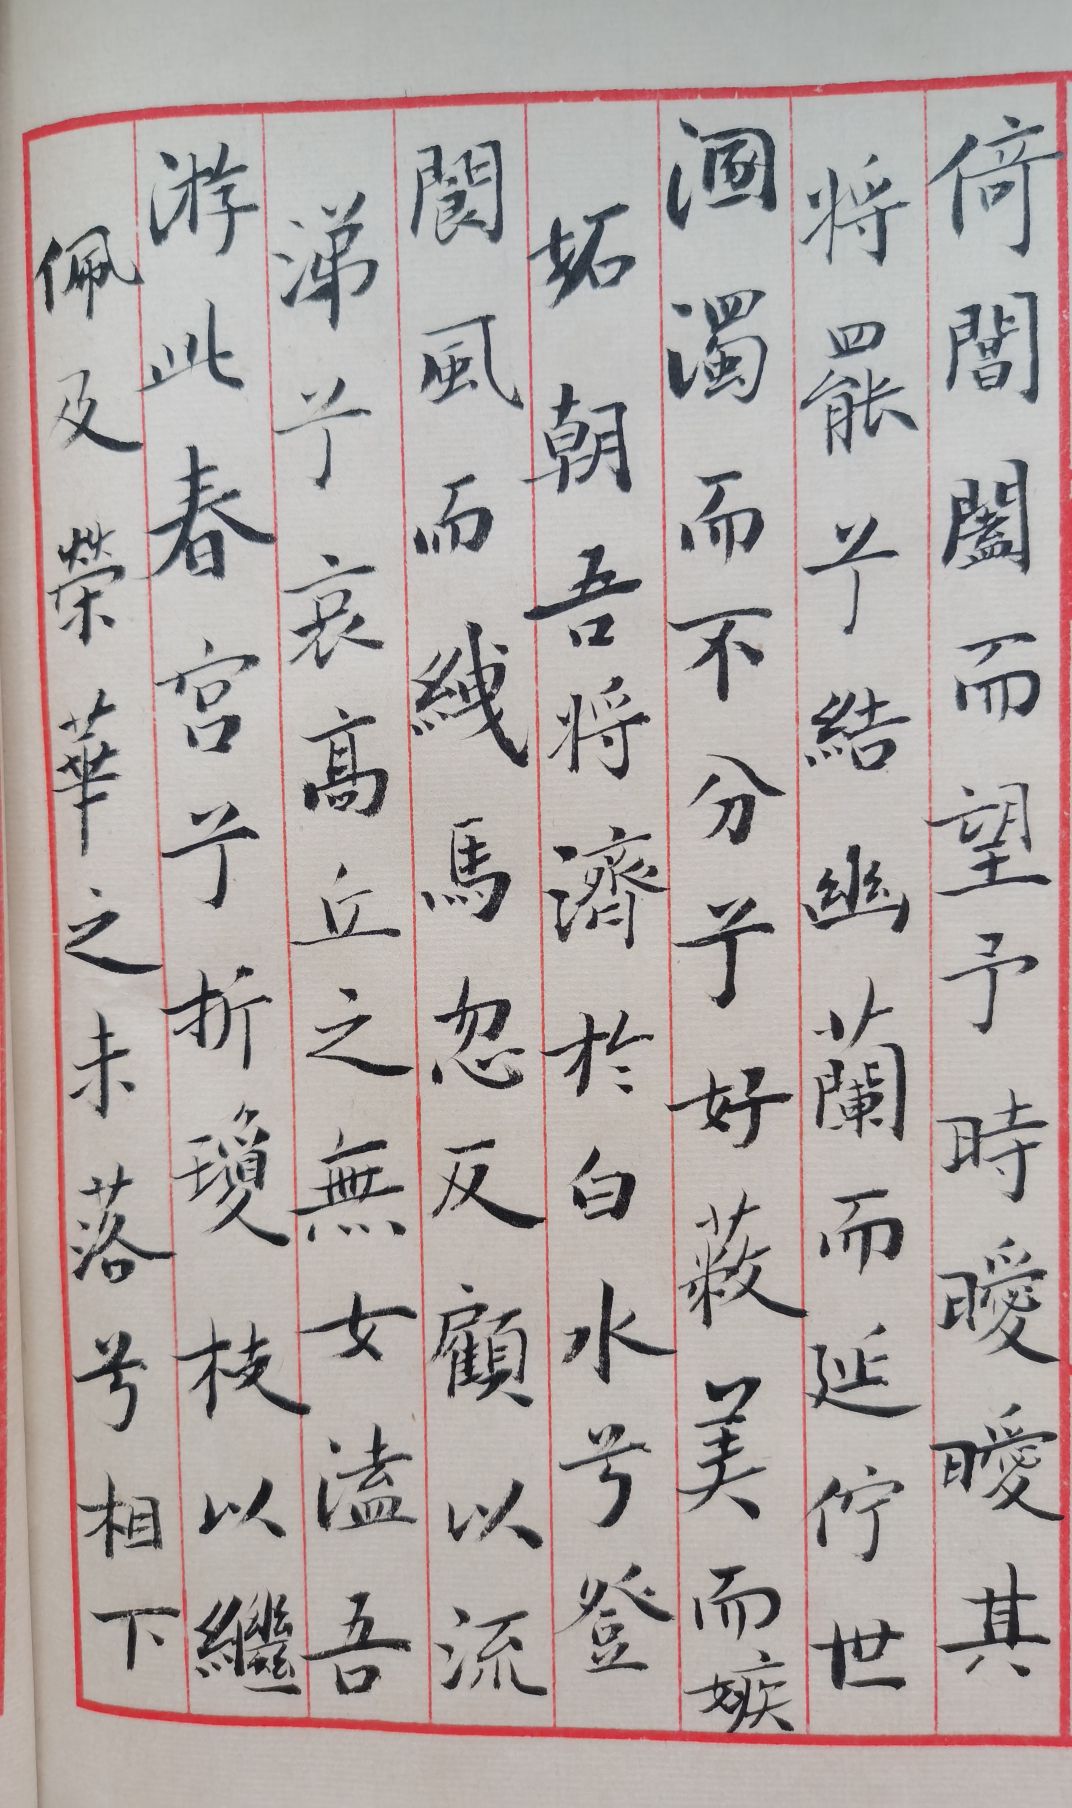 倚閶闔而望予時曖曖其
将罷兮結幽蘭而延佇世
溷濁而不分兮好蔽美而嫉
妬朝吾将濟於白水兮登
閬風而絏馬忽反顧以流
涕兮哀高丘之無女溘吾
游此春宮兮折瓊枝以繼
佩及榮華之未落兮相下